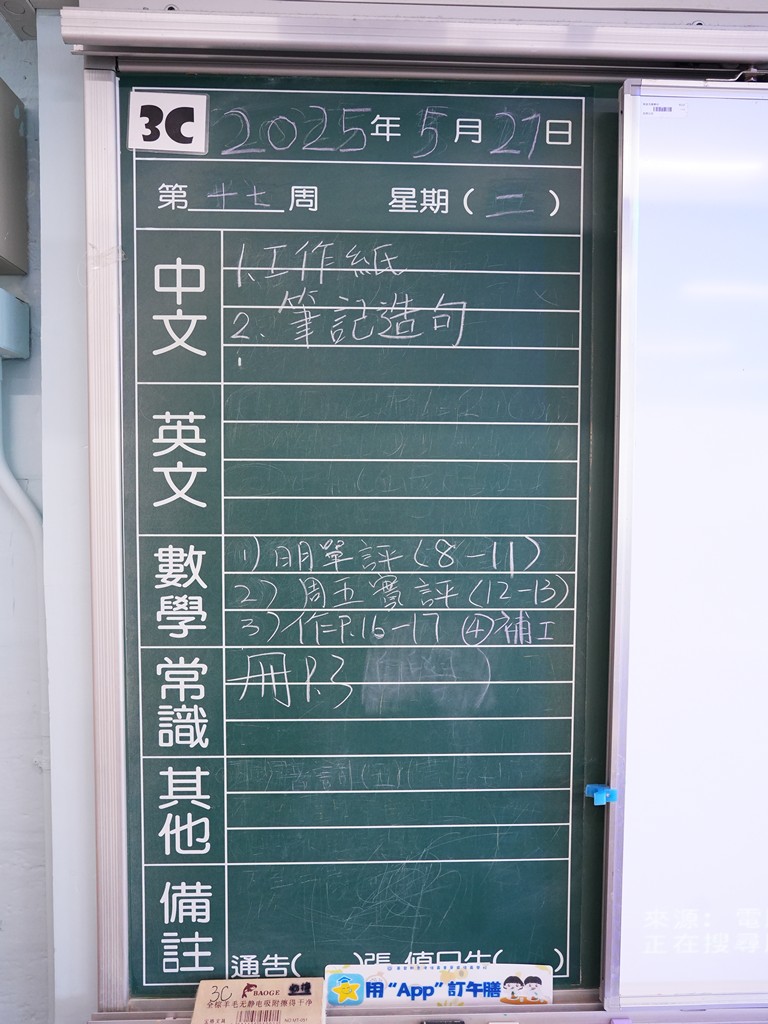 3C 2025年5月27日
第十七周 星期(二)
中文
1.工作紙
2.筆記造句
英文
數學
1)明單評(8-11)
2)周五實評(12-13)
3)作P.16-17 ④補工
常識
冊P.3
其他
備註
通告( )張
3C BAOGE
全棕羊毛无静电吸附擦得干净
用“App”訂午膳
來源: 電
正在搜尋